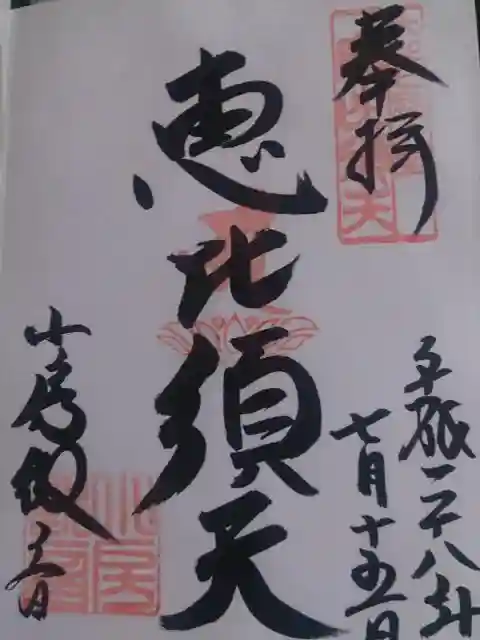 奉拝
平成二十八年
七月十五日
恵比須天
小房観音